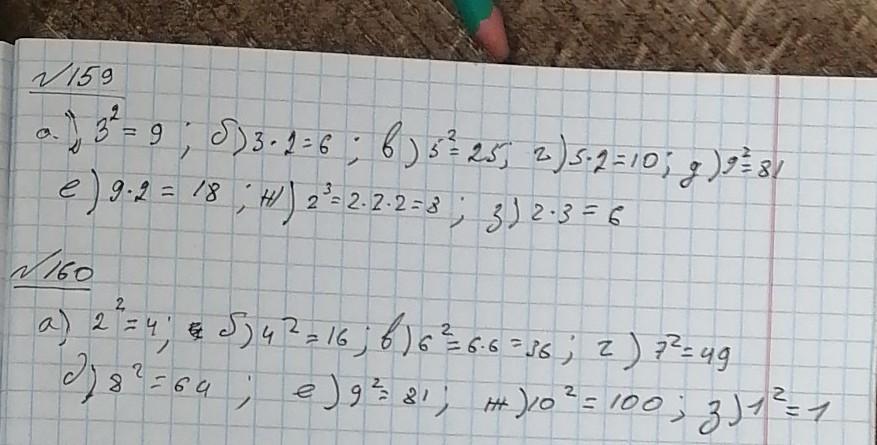 №159
а.) 3² = 9 ; б) 3·2=6 ; в) 5²=25; г) 5·2=10; д) 9²=81
е) 9·2 = 18 ; ж) 2³=2·2·2=8 ; з) 2·3 = 6
№160
а) 2²=4; б) 4²=16; в) 6²=6·6=36; г) 7²=49
д) 8²=64 ; е) 9²=81; ж) 10²=100; з) 1²=1